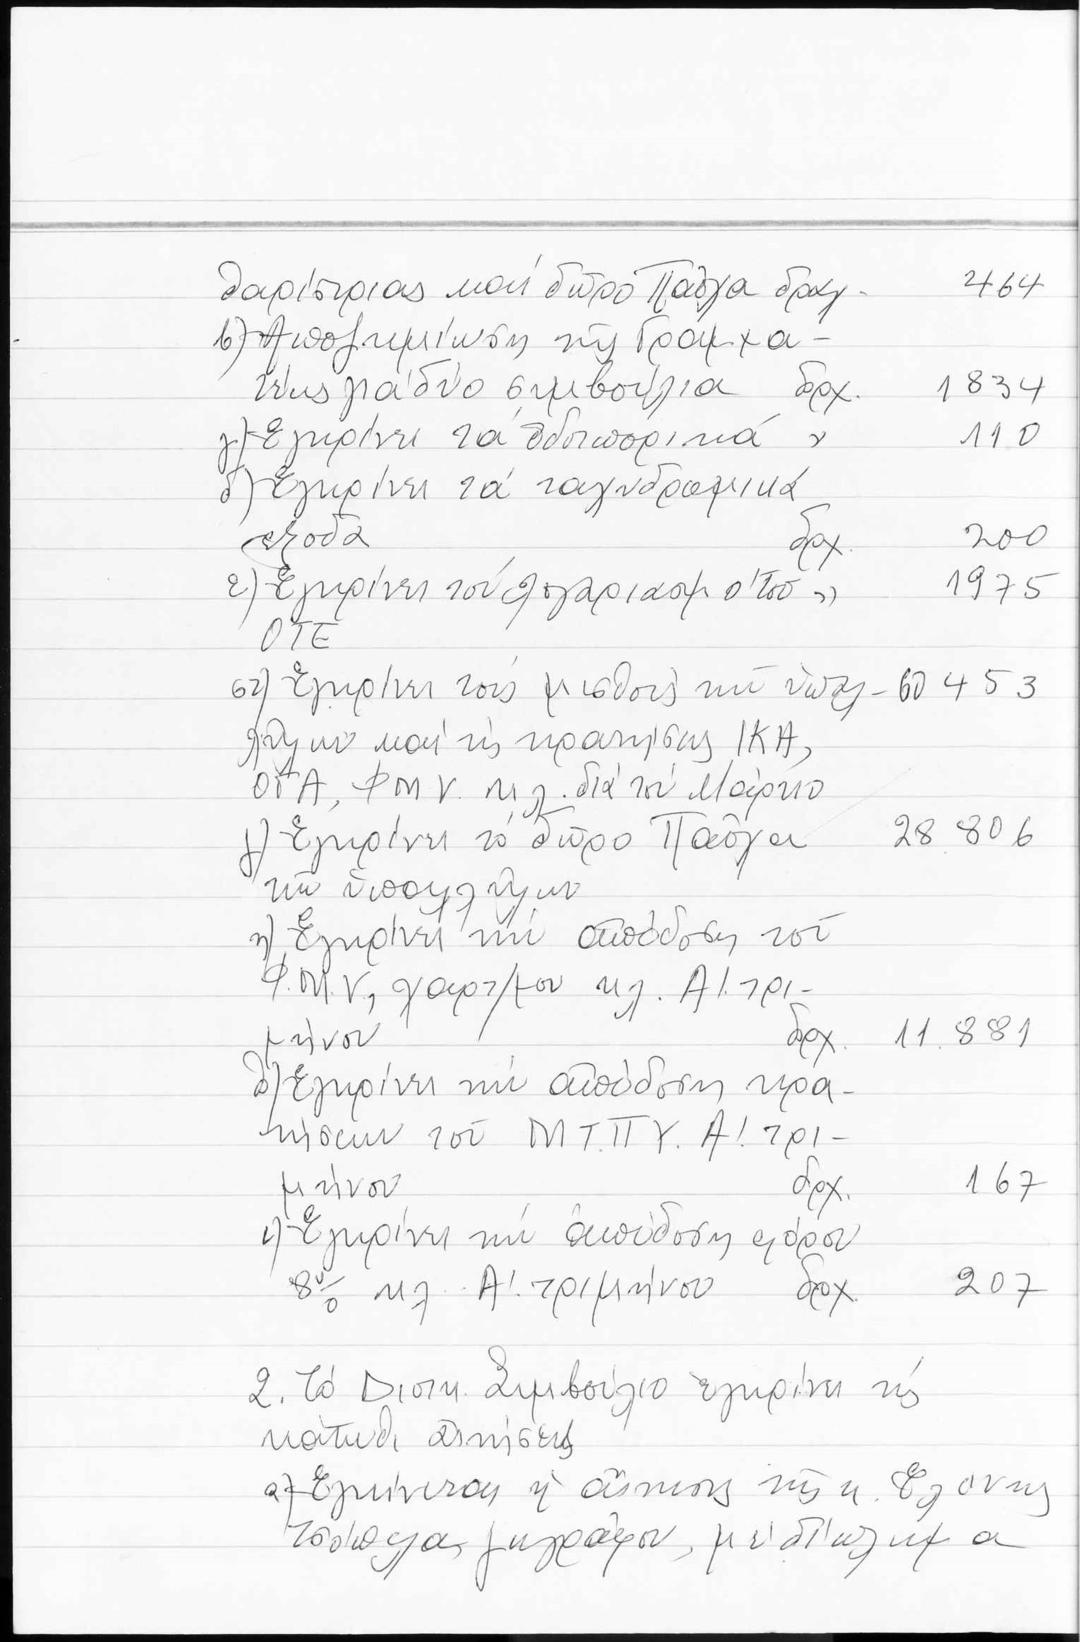 θαρίστριας καί δῶρο Πάσχα δραχ. 464
β) Ἀποζημίωση τῆς Γραμμα-
τέως γιά δύο συμβούλια δρχ. 1834
γ) Ἐγκρίνει τά ὁδοιπορικά " 110
δ) Ἐγκρίνει τά ταχυδρομικά
ἔξοδα δρχ. 200
ε) Ἐγκρίνει τόν λογαριασμό τοῦ " 1975
ΟΤΕ
στ) Ἐγκρίνει τούς μισθούς τῶν ὑπαλ- 60453
λήλων καί τίς κρατήσεις ΙΚΑ,
ΟΓΑ, ΦΜΥ. κλ. διά τόν Μάρτιο
ζ) Ἐγκρίνει τό δῶρο Πάσχα 28.806
τῶν ὑπαλλήλων
η) Ἐγκρίνει τήν ἀπόδοση τοῦ
Φ.Μ.Υ., χαρτ/μου κλ. Α!. τρι-
μήνου δρχ. 11.881
θ) Ἐγκρίνει τήν ἀπόδοση κρα-
τήσεων τοῦ ΜΤ.ΠΥ. Α!. τρι-
μήνου δρχ. 167
ι) Ἐγκρίνει τήν ἀπόδοση φόρου
8% κλ. Α!. τριμήνου δρχ. 207
2. Τό Διοικ. Συμβούλιο ἐγκρίνει τίς
κάτωθι αἰτήσεις
α) Ἐγκρίνεται ἡ αἴτησις τῆς κ.
ζωγράφου, μέ δίπλωμα